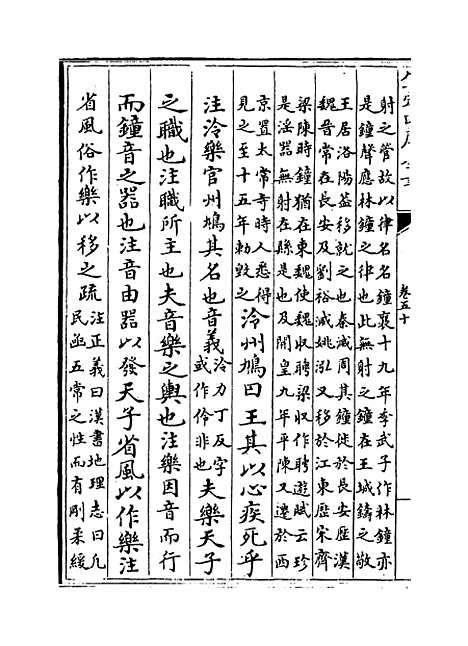 卷五十
射之管故以律名名鐘襄十九年季武子作林鐘亦
是鐘聲應林鐘之律也此無射之鐘在王城鑄之敬
王居洛陽蓋移就之也秦滅周其鐘徙於長安歷漢
魏晉常在長安及劉裕滅姚泓又移於江東歷宋齊
梁陳時鐘猶在東魏使魏收聘梁收作聘遊賦云珍
是淫器無射在縣是也及開皇九年平陳又遷於西
京置太常寺時人悉得
見之至十五年勅毀之
泠州鳩曰王其以心疾死乎
注泠樂官州鳩其名也音義
泠力丁反字
或作伶非也
夫樂天子
之職也注職所主也夫音樂之輿也注樂因音而行
而鐘音之器也注音由器以發天子省風以作樂注
省風俗作樂以移之疏
注正義曰漢書地理志曰凡
民函五常之性而有剛柔緩